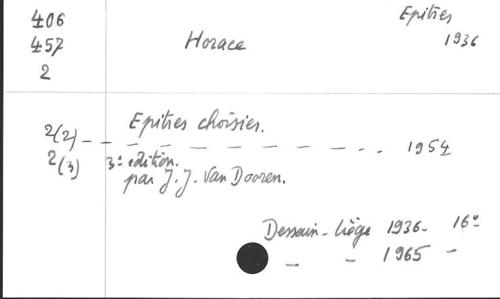 406 Epitres
457 Horace 1936
2
Epitres choisies.
2(2) - - - - - - - - . . 1954
2(3) 3e edition.
par J. J. Van Dooren.
Dessain - Liège 1936 - 16°
- - 1965 -